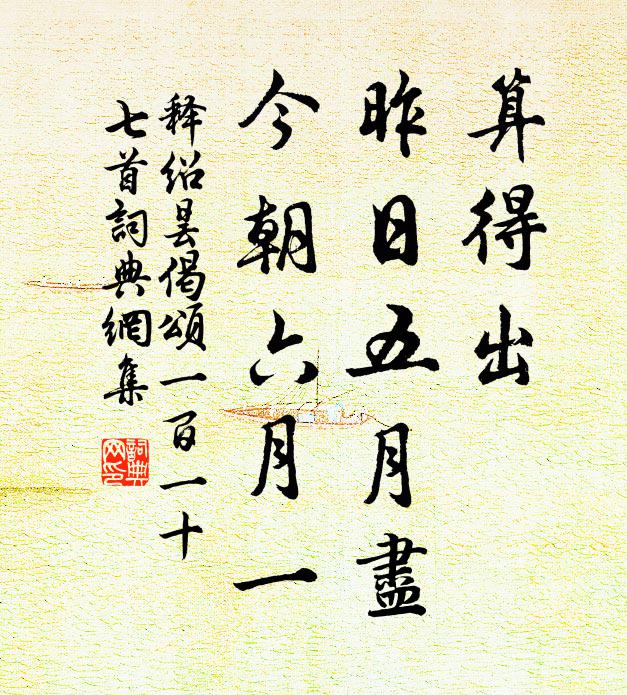 算得出
昨日五月盡
今朝六月一
释绍昙偈頌一百一十
七首詞典網集
詞典
网印